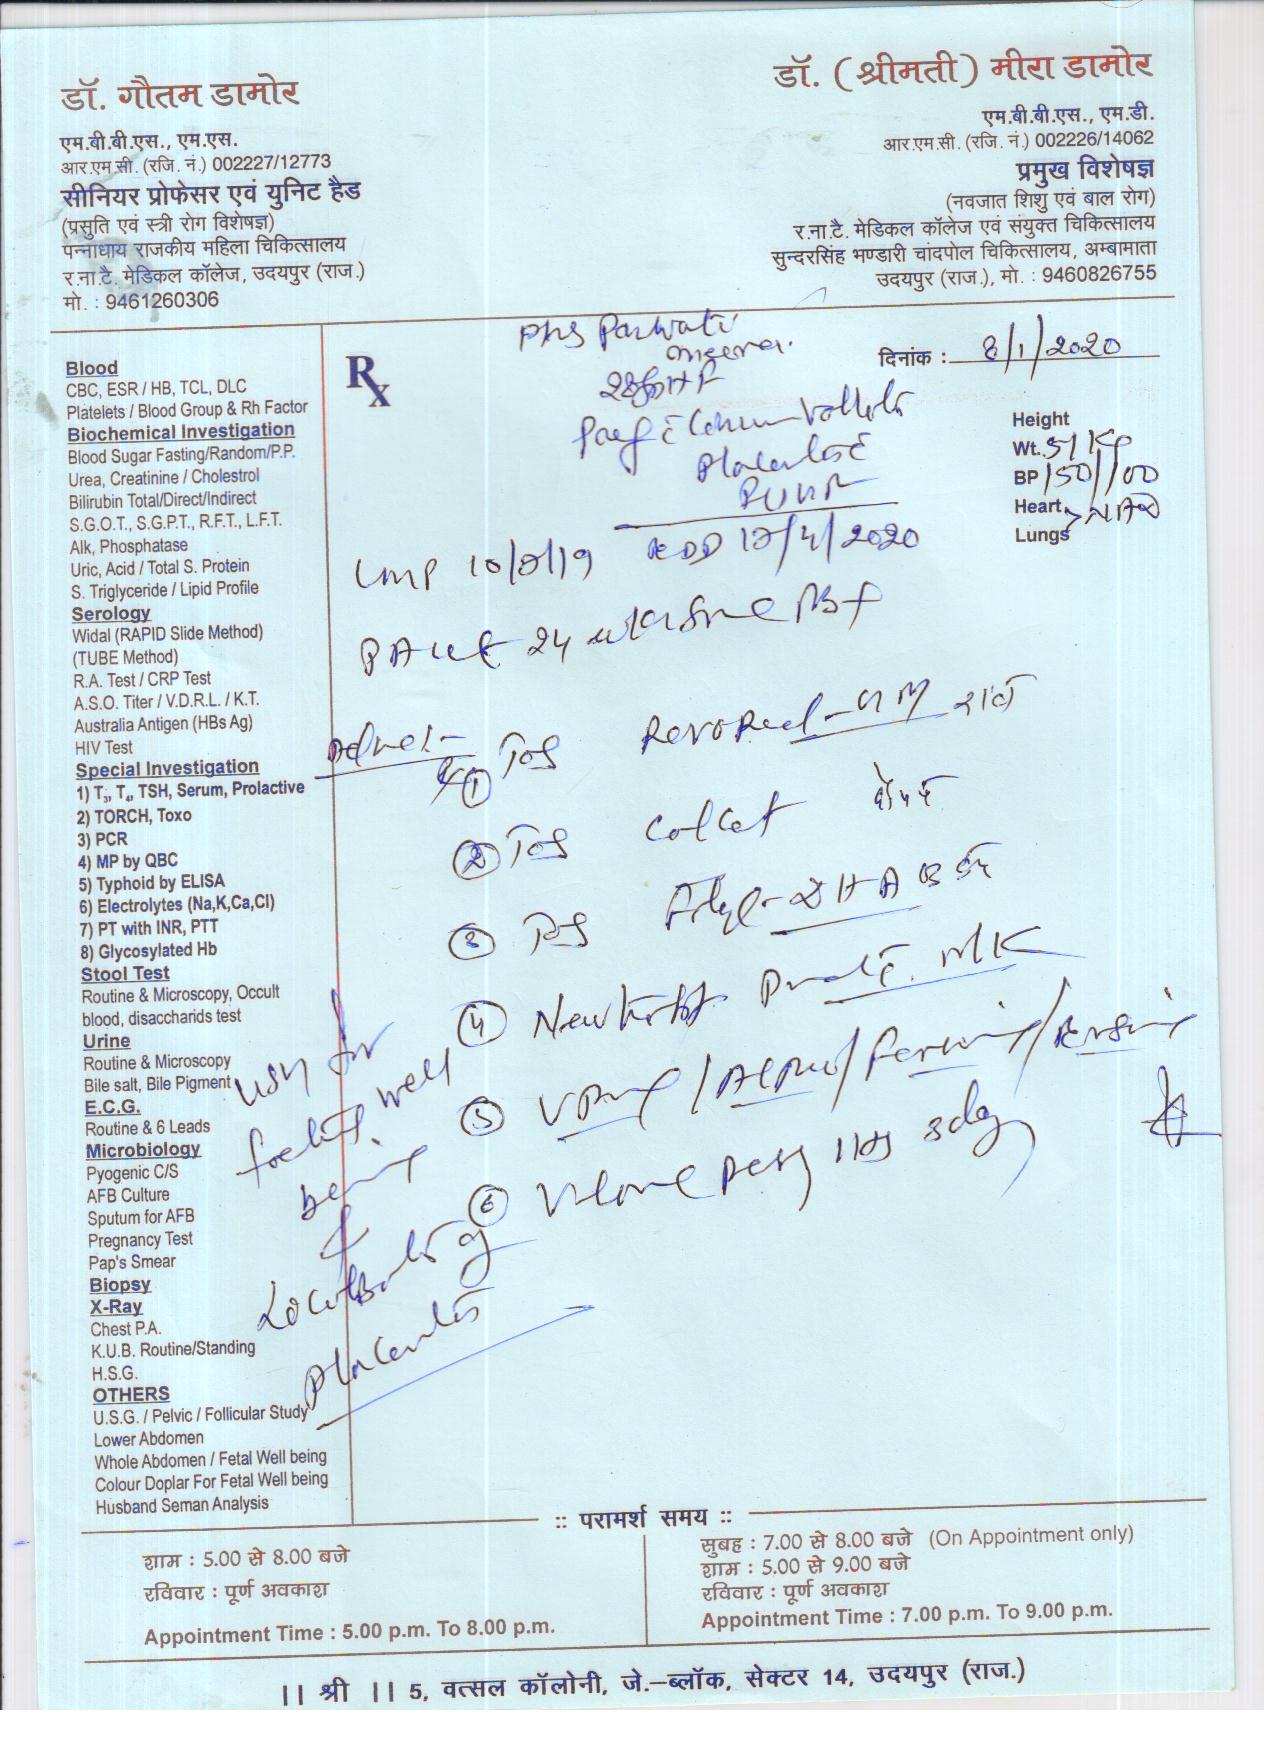 डॉ. गौतम डामोर
एम.बी.बी.एस., एम.एस.
आर.एम.सी. (रजि. नं.) 002227/12773
सीनियर प्रोफेसर एवं युनिट हैड
(प्रसुति एवं स्त्री रोग विशेषज्ञ)
पन्नाधाय राजकीय महिला चिकित्सालय
र.ना.टै. मेडिकल कॉलेज, उदयपुर (राज.)
मो. : 9461260306
डॉ. (श्रीमती) मीरा डामोर
एम.बी.बी.एस., एम.डी.
आर.एम.सी. (रजि. नं.) 002226/14062
प्रमुख विशेषज्ञ
(नवजात शिशु एवं बाल रोग)
र.ना.टै. मेडिकल कॉलेज एवं संयुक्त चिकित्सालय
सुन्दरसिंह भण्डारी चांदपोल चिकित्सालय, अम्बामाता
उदयपुर (राज.), मो. : 9460826755
Parwati
दिनांक : 8/1/2020
Height
Wt. 51 Kg
BP 150/100
Heart
Lungs NAD
Rx
LMP 10/7/19 EDD 17/4/2020
24
① Tab
② Tab
③ Tab DHA
④
⑤
⑥
USG for
foetal well
being
&
Localization of
placenta
Blood
CBC, ESR / HB, TCL, DLC
Platelets / Blood Group & Rh Factor
Biochemical Investigation
Blood Sugar Fasting/Random/P.P.
Urea, Creatinine / Cholestrol
Bilirubin Total/Direct/Indirect
S.G.O.T., S.G.P.T., R.F.T., L.F.T.
Alk, Phosphatase
Uric, Acid / Total S. Protein
S. Triglyceride / Lipid Profile
Serology
Widal (RAPID Slide Method)
(TUBE Method)
R.A. Test / CRP Test
A.S.O. Titer / V.D.R.L. / K.T.
Australia Antigen (HBs Ag)
HIV Test
Special Investigation
1) T₃, T₄, TSH, Serum, Prolactive
2) TORCH, Toxo
3) PCR
4) MP by QBC
5) Typhoid by ELISA
6) Electrolytes (Na,K,Ca,Cl)
7) PT with INR, PTT
8) Glycosylated Hb
Stool Test
Routine & Microscopy, Occult
blood, disaccharids test
Urine
Routine & Microscopy
Bile salt, Bile Pigment
E.C.G.
Routine & 6 Leads
Microbiology
Pyogenic C/S
AFB Culture
Sputum for AFB
Pregnancy Test
Pap's Smear
Biopsy
X-Ray
Chest P.A.
K.U.B. Routine/Standing
H.S.G.
OTHERS
U.S.G. / Pelvic / Follicular Study
Lower Abdomen
Whole Abdomen / Fetal Well being
Colour Doplar For Fetal Well being
Husband Seman Analysis
:: परामर्श समय ::
शाम : 5.00 से 8.00 बजे
रविवार : पूर्ण अवकाश
Appointment Time : 5.00 p.m. To 8.00 p.m.
सुबह : 7.00 से 8.00 बजे (On Appointment only)
शाम : 5.00 से 9.00 बजे
रविवार : पूर्ण अवकाश
Appointment Time : 7.00 p.m. To 9.00 p.m.
|| श्री || 5, वत्सल कॉलोनी, जे.-ब्लॉक, सेक्टर 14, उदयपुर (राज.)